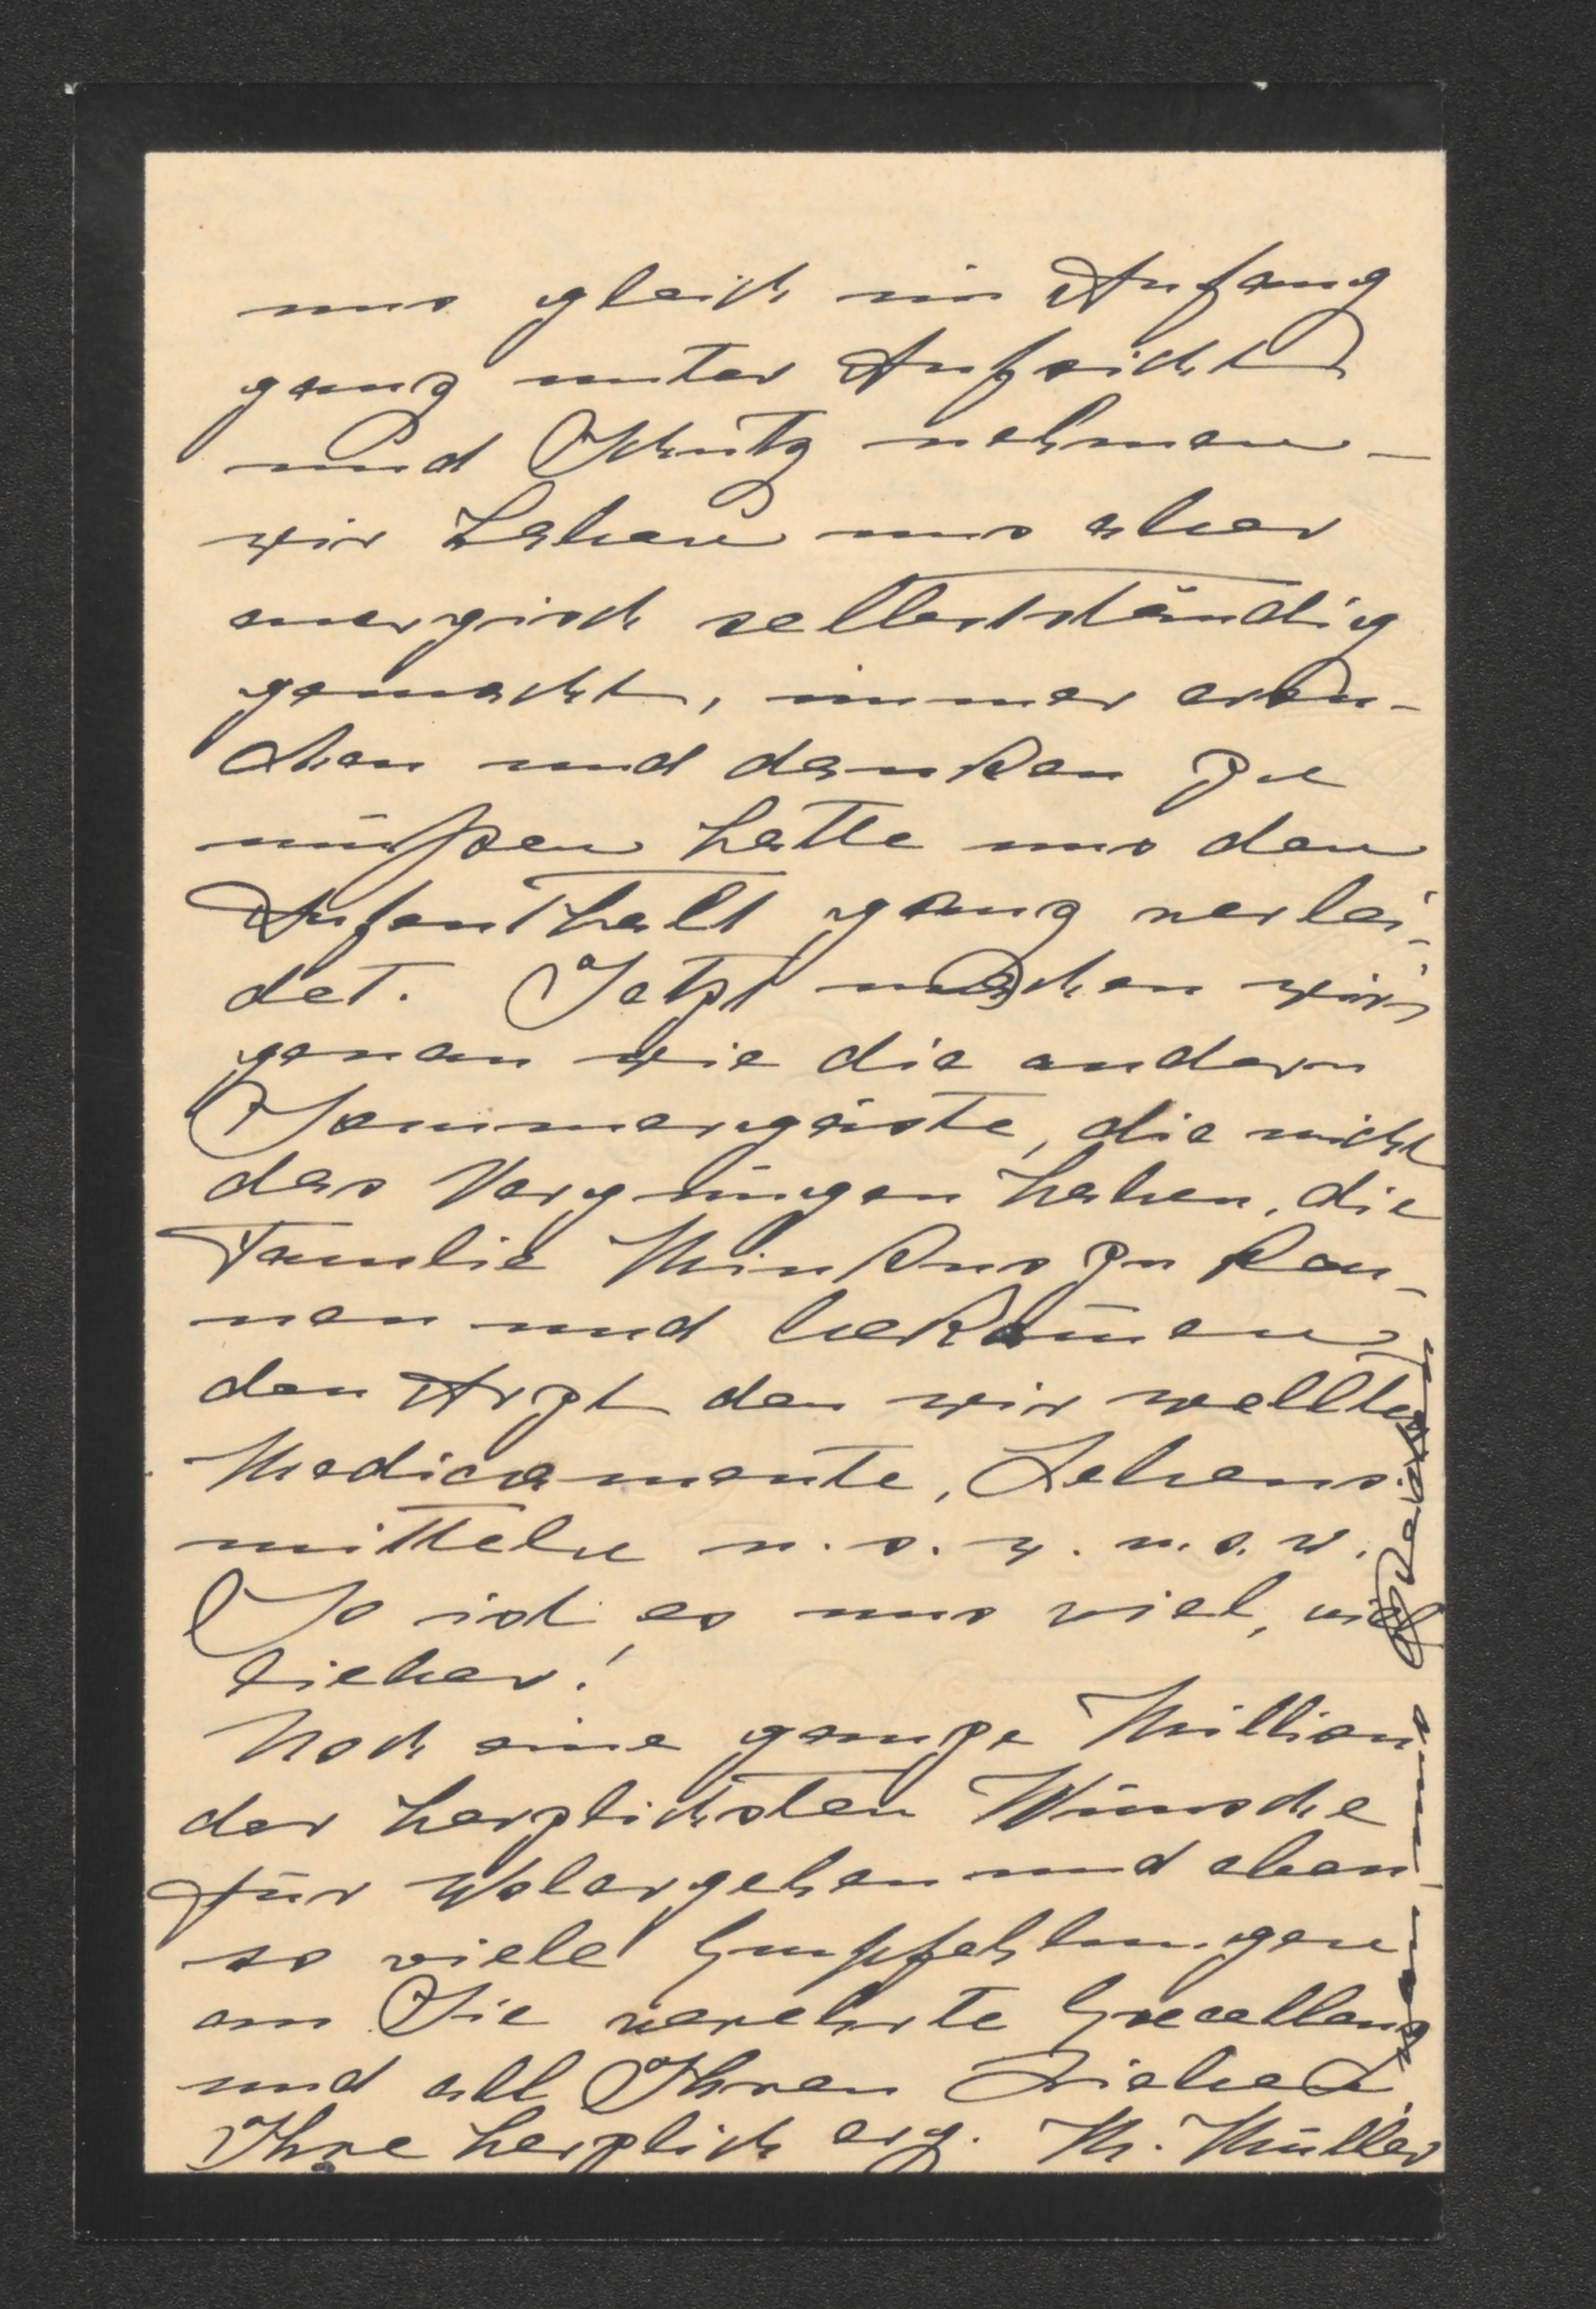 uns gleich im Anfang
ganz unter Aufsicht
und Schutz nehmen –
wir haben uns aber
energisch selbstständig
gemacht, immer ersu-
chen und danken zu
müßen hätte uns den
Aufenthalt ganz verlei-
det. Jetzt machen wirs
genau wie die andern
Sommergäste, die nicht
das Vergnügen haben, die
Familie Minkus zu ken-
nen und bekom̄en
den Arzt den wir wollten
Medicamente, Lebens
mitteln u. s. w. u. s. w.
So ist es uns viel, viel
lieber!
Noch eine ganze Million
der herzlichsten Wünsche
für Wolergehen und eben-
so viele Empfehlungen
an Sie verehrte Excellenz
und all Ihren Lieben.
Ihre herzlich erg. M. Müller